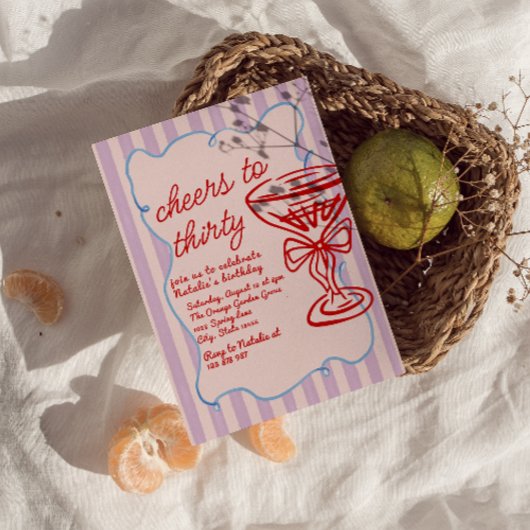 cheers to
thirty
join us to celebrate
Natalie's birthday
Saturday, August 12 at 2pm
The Orange Garden Grove
1023 Spring Lane
City, State 12344
Rsvp to Natalie at
123 678 987